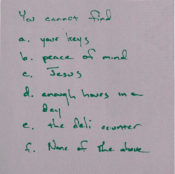 You cannot find
a. your keys
b. peace of mind
c. Jesus
d. enough hours in a
day
e. the deli counter
f. None of the above